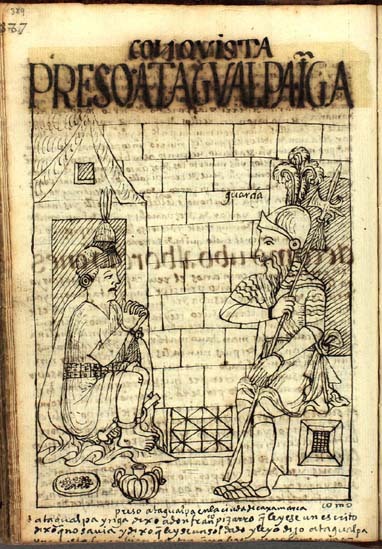 389
387
CONQVISTA
PRESO ATAGVALPA ĪGA
guarda
preso atagualpa en la ciudad de caxamarca como
atagualpa ynga dixo a don franco pizarro q leyese un escrito
dixo q no sauia y dixo q leyese un soldado y leyo dixo atagualpa